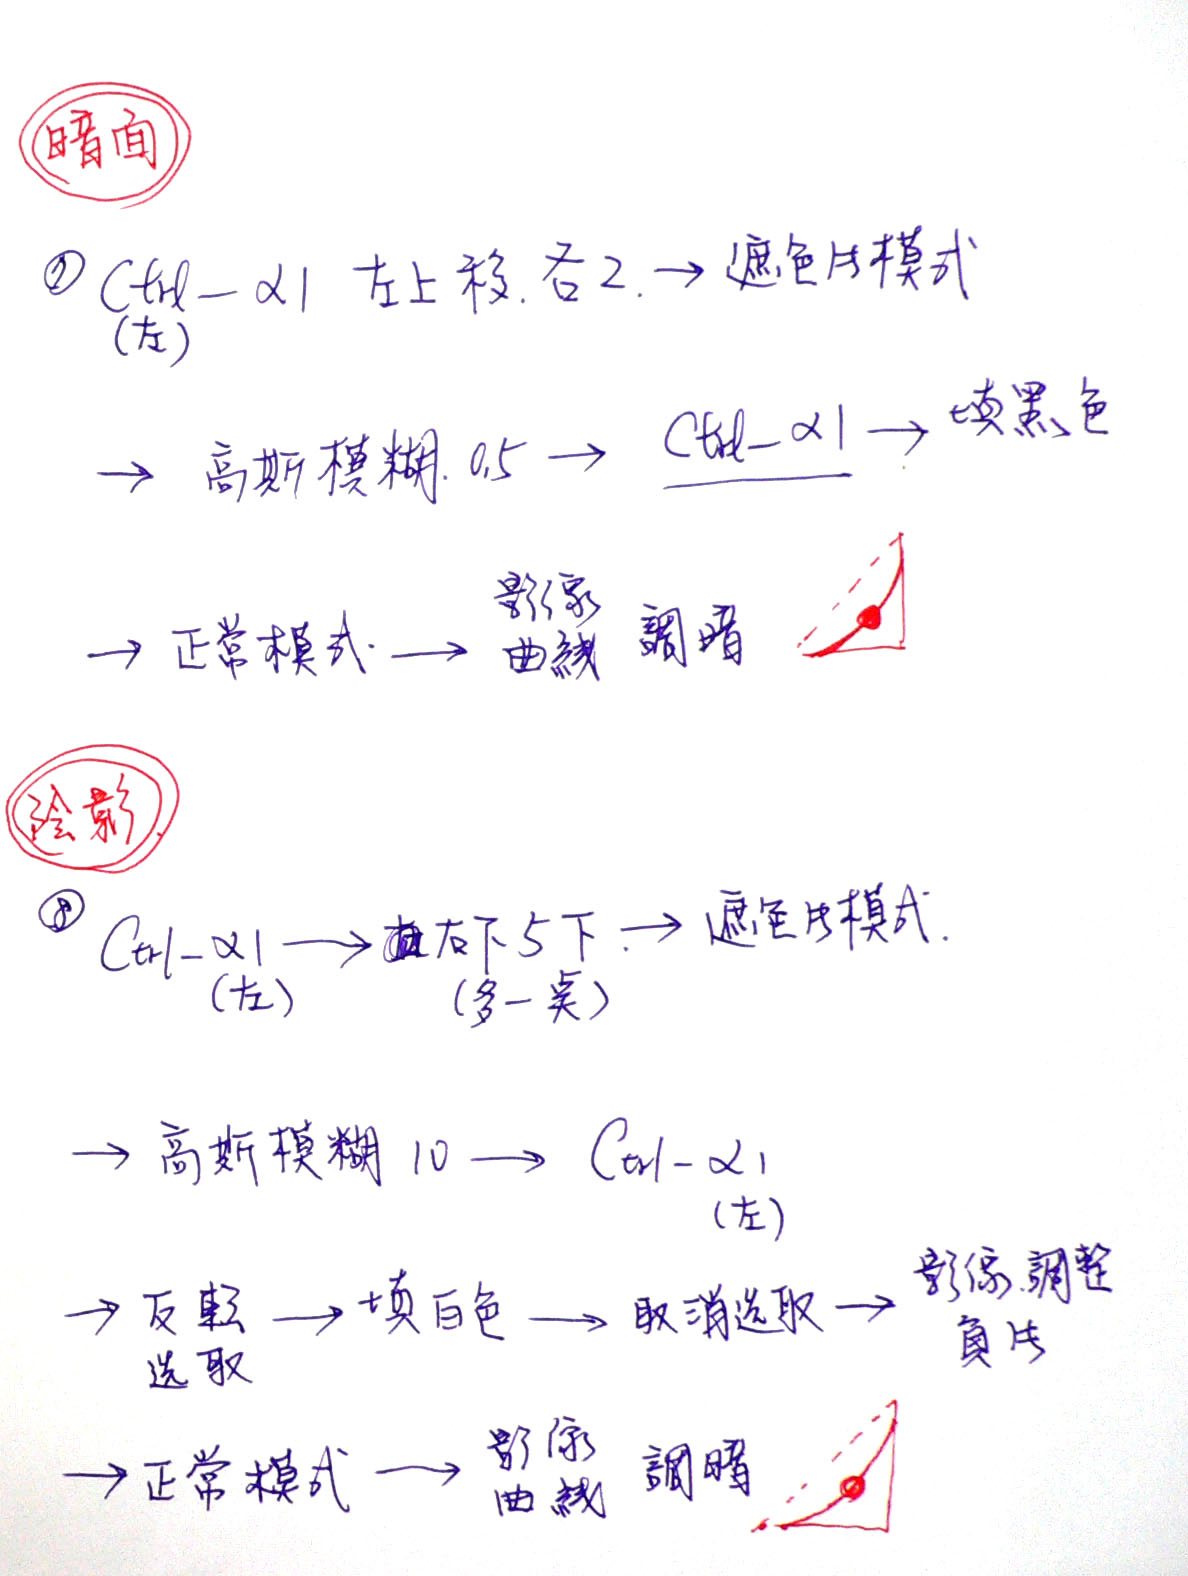 暗面
⑦ Ctrl-α1 左上移.各2.→遮色片模式
(左)
→ 高斯模糊.0.5 → Ctrl-α1 → 填黑色
→ 正常模式.→ 影像曲线 調暗
陰影
⑧ Ctrl-α1 → 右下5下.→ 遮色片模式.
(左) (多一点)
→ 高斯模糊 10 → Ctrl-α1
(左)
→ 反転选取 → 填白色 → 取消选取 → 影像.調整負片
→ 正常模式 → 影像曲线 調暗